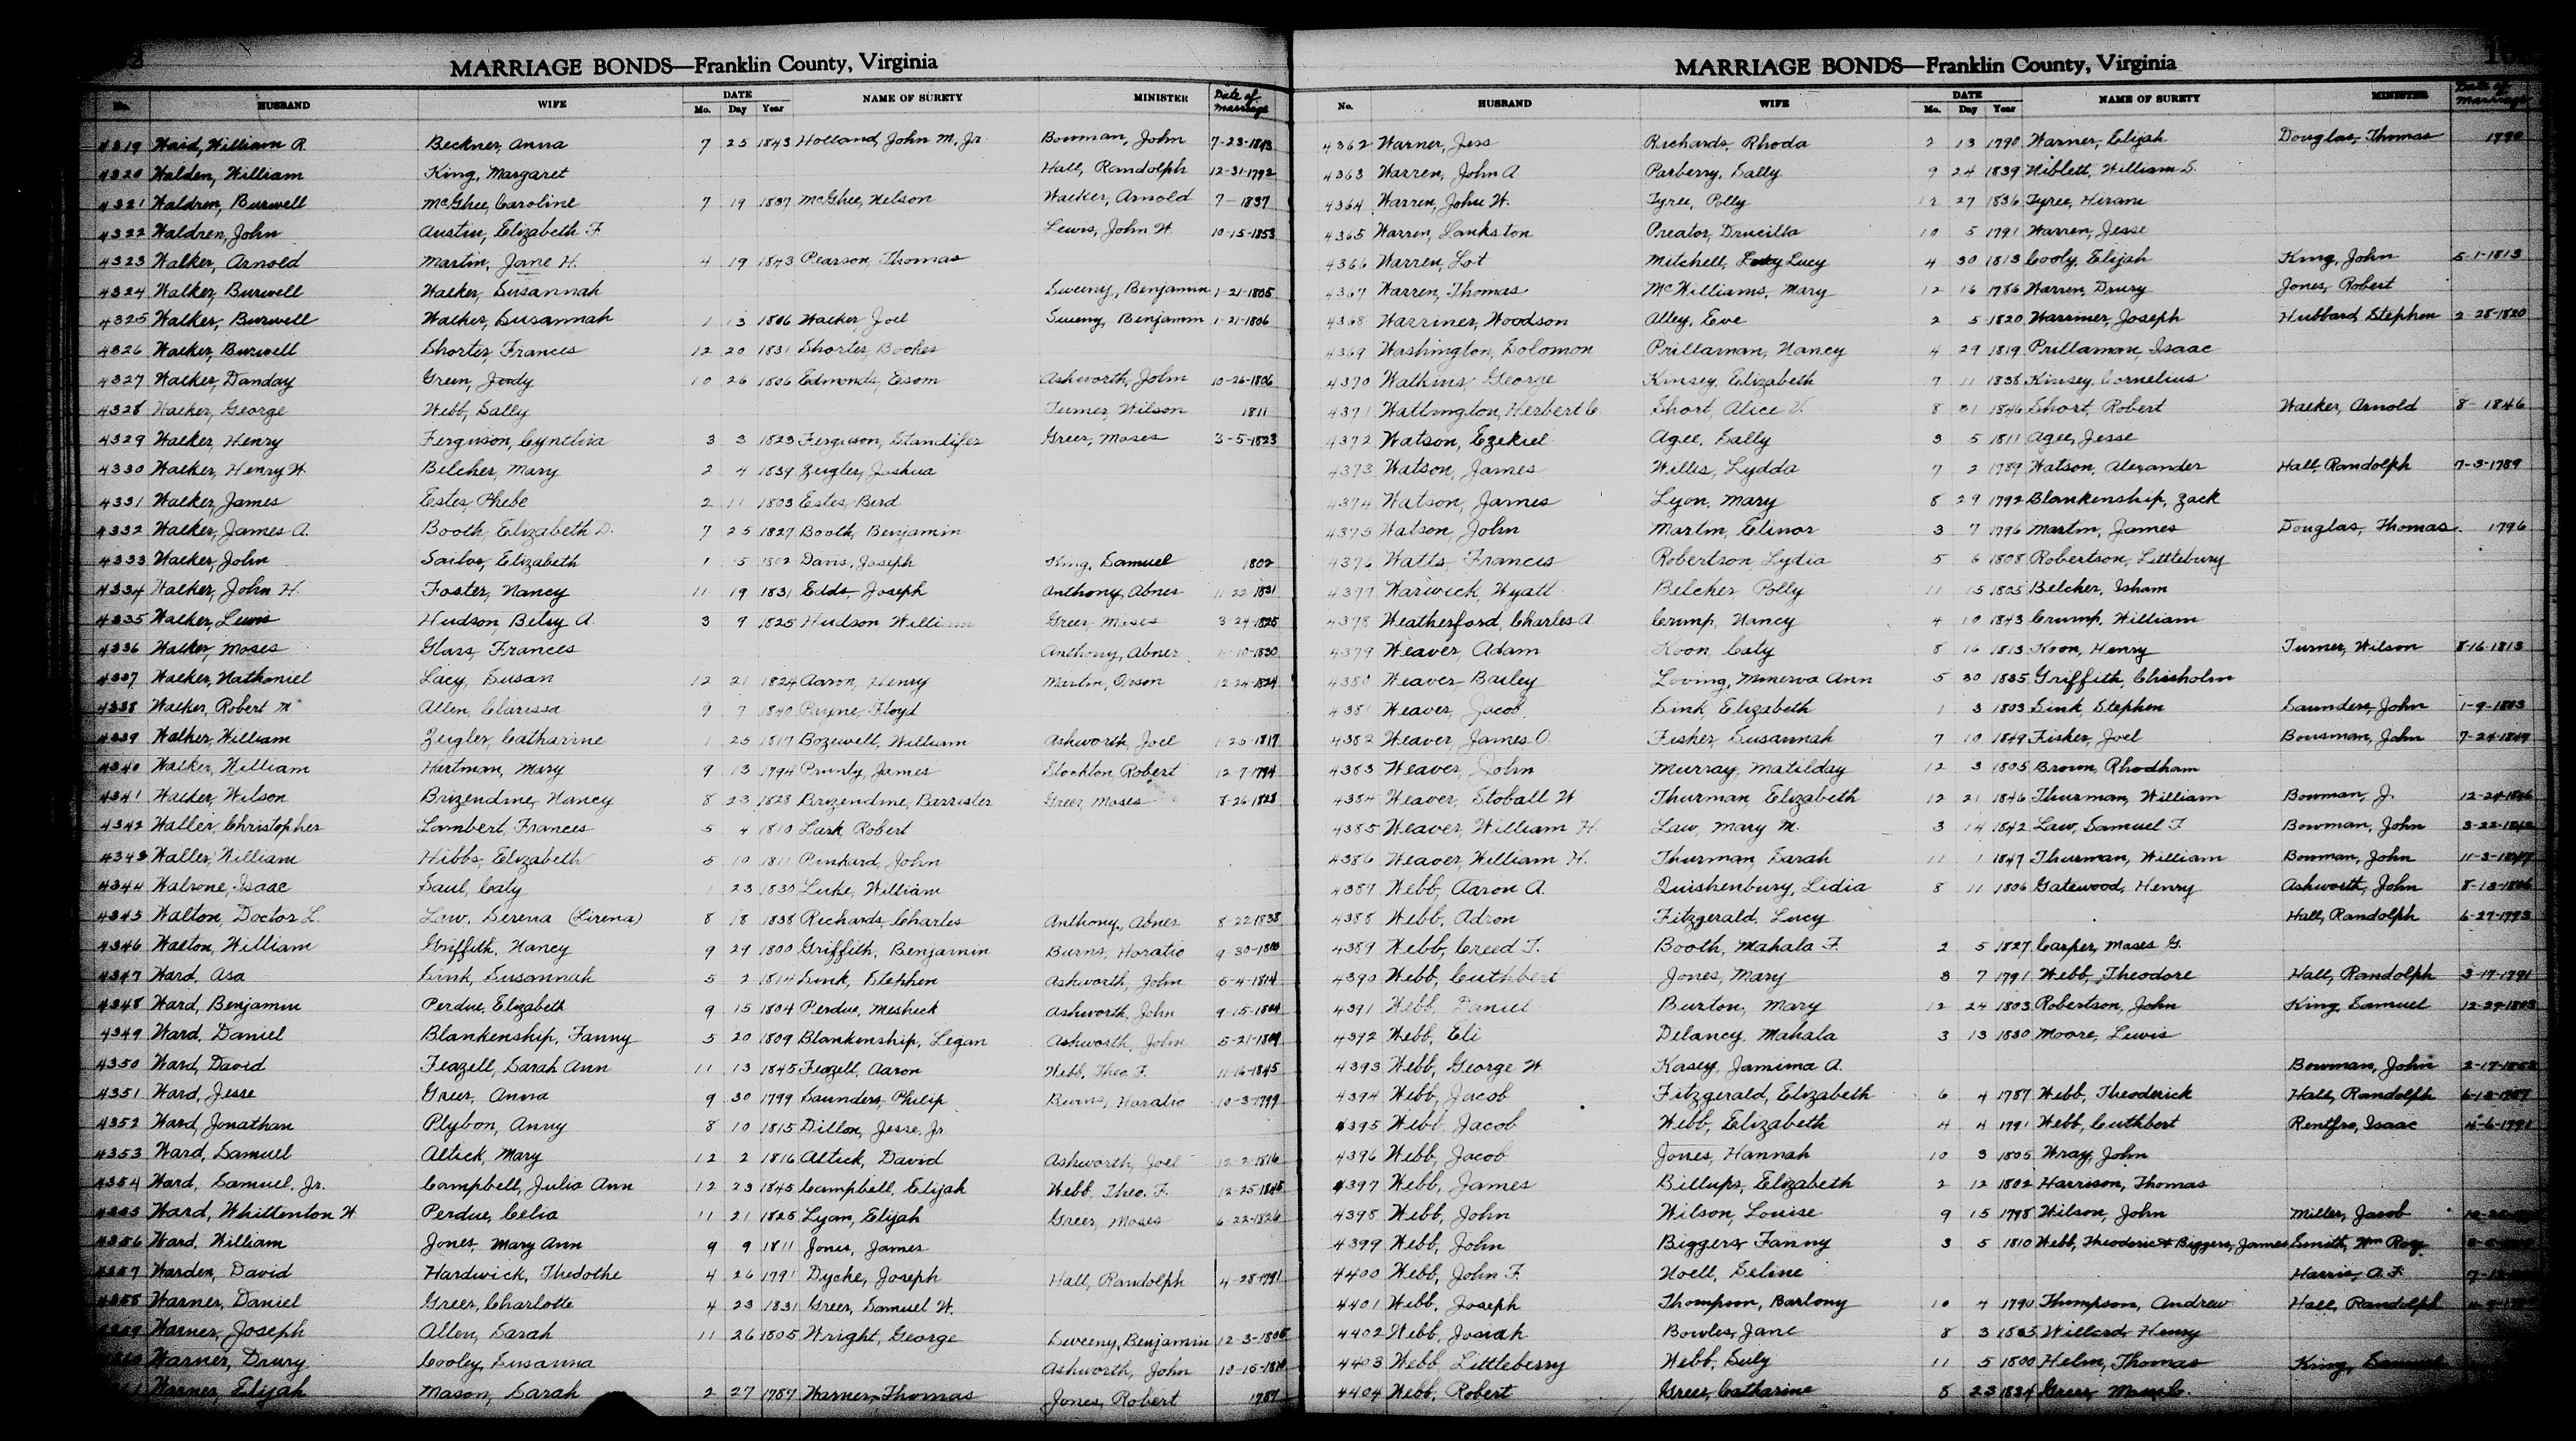 MARRIAGE BONDS—Franklin County, Virginia
No. HUSBAND WIFE DATE Mo. Day Year NAME OF SURETY MINISTER Date of Marriage
4319 Waid, William R. Beckner, Anna 7 25 1843 Holland, John M. Jr Bowman, John 7-23-1843
4320 Walden, William King, Margaret Hall, Randolph 12-31-1792
4321 Waldren, Burwell McGhee, Caroline 7 19 1837 McGhee, Nelson Walker, Arnold 7- 1837
4322 Waldren, John Austin, Elizabeth F. Lewis, John W. 10-15-1853
4323 Walker, Arnold Martin, Jane H. 4 19 1843 Pearson, Thomas
4324 Walker, Burwell Walker, Susannah Sweeny, Benjamin 1-21-1805
4325 Walker, Burwell Walker, Susannah 1 13 1806 Walker, Joel Sweny, Benjamin 1-21-1806
4326 Walker, Burwell Shorter, Frances 12 20 1831 Shorter, Booker
4327 Walker, Danday Green, Judy 10 26 1806 Edmonds, Esom Ashworth, John 10-26-1806
4328 Walker, George Webb, Sally Turner, Wilson 1811
4329 Walker, Henry Ferguson, Cynthia 3 3 1823 Ferguson, Standifer Greer, Moses 3-5-1823
4330 Walker, Henry W. Belcher, Mary 2 4 1839 Zeigler, Joshua
4331 Walker, James Estes, Phebe 2 11 1803 Estes, Berd
4332 Walker, James A. Booth, Elizabeth D. 7 25 1827 Booth, Benjamin
4333 Walker, John Sailor, Elizabeth 1 5 1802 Davis, Joseph King, Samuel 1802
4334 Walker, John H. Foster, Nancy 11 19 1831 Edds, Joseph Anthony, Abner 11-22-1831
4335 Walker, Lewis Hudson, Betsy A. 3 9 1825 Hudson William Greer, Moses 3-24-1825
4336 Walker, Moses Glass, Frances Anthony, Abner 10-1830
4337 Walker, Nathaniel Lacy, Susan 12 21 1824 Aaron, Henry Martin, Orson 12-24-1824
4338 Walker, Robert M Allen, Clarissa 9 7 1840 Payne, Floyd
4339 Walker, William Zeigler, Catharine 1 25 1817 Bozewell, William Ashworth, Joel 1-25-1817
4340 Walker, William Hartman, Mary 9 13 1794 Prunty, James Stockton, Robert 12-7-1794
4341 Walker, Wilson Brizendine, Nancy 8 23 1828 Brizendine, Barrister Greer, Moses 8-26-1828
4342 Waller, Christopher Lambert, Frances 5 4 1810 Lark Robert
4343 Waller, William Hibbs, Elizabeth 5 10 1811 Pinkard, John
4344 Walrone, Isaac Saul, Caty 1 23 1830 Luke, William
4345 Walton, Doctor L. Law, Serena (Sirena) 8 18 1838 Richards, Charles Anthony, Abner 8-22-1838
4346 Walton, William Griffith, Nancy 9 29 1800 Griffith, Benjamin Burns, Horatio 9-30-1800
4347 Ward, Asa Sink, Susannah 5 2 1814 Sink, Stephen Ashworth, John 5-4-1814
4348 Ward, Benjamin Perdue, Elizabeth 9 15 1804 Perdue, Mesheck Ashworth, John 9-15-1804
4349 Ward, Daniel Blankenship, Fanny 5 20 1809 Blankenship, Legan Ashworth, John 5-21-1809
4350 Ward, David Feazell, Sarah Ann 11 13 1845 Feazell, Aaron Webb, Theo. F. 11-16-1845
4351 Ward, Jesse Greer, Anna 9 30 1799 Saunders, Philip Burns, Horatio 10-3-1799
4352 Ward, Jonathan Plybon, Anny 8 10 1815 Dillon, Jesse, Jr.
4353 Ward, Samuel Altick, Mary 12 2 1816 Altick, David Ashworth, Joel 12-2-1816
4354 Ward, Samuel, Jr. Campbell, Julia Ann 12 23 1845 Campbell, Elijah Webb, Theo. F. 12-25-1845
4355 Ward, Whittenton W Perdue, Celia 11 21 1825 Lyon, Elijah Greer, Moses 6-22-1826
4356 Ward, William Jones, Mary Ann 9 9 1811 Jones, James
4357 Warden, David Hardwick, Thedothe 4 26 1791 Dyche, Joseph Hall, Randolph 4-28-1791
4358 Warner, Daniel Greer, Charlotte 4 23 1831 Greer, Samuel W.
Warner, Joseph Allen, Sarah 11 26 1805 Wright, George Sweeny, Benjamin 12-3-1805
Warner, Drury Cooley, Susanna Ashworth, John 10-15-1810
Warner, Elijah Mason, Sarah 2 27 1787 Warner, Thomas Jones, Robert 1787
MARRIAGE BONDS—Franklin County, Virginia
No. HUSBAND WIFE DATE Mo. Day Year NAME OF SURETY MINISTER Date of Marriage
4362 Warner, Jess Richards, Rhoda 2 13 1790 Warner, Elijah Douglas, Thomas 1790
4363 Warren, John A Parberry, Sally 9 24 1839 Niblett, William S.
4364 Warren, John W. Tyree, Polly 12 27 1836 Tyree, Hiram
4365 Warren, Lankston Preator, Drucilla 10 5 1791 Warren, Jesse
4366 Warren, Lot Mitchell, Lucy 4 30 1813 Cooly, Elijah King, John 5-1-1813
4367 Warren, Thomas McWilliams, Mary 12 16 1786 Warren, Drury Jones, Robert
4368 Warriner, Woodson Alley, Eve 2 5 1820 Warriner, Joseph Hubbard, Stephen 2-28-1820
4369 Washington, Solomon Prillaman, Nancy 4 29 1819 Prillaman, Isaac
4370 Watkins, George Kinsey, Elizabeth 7 11 1838 Kinsey, Cornelius
4371 Watlington, Herbert C Short, Alice V. 8 31 1846 Short, Robert Walker, Arnold 8- 1846
4372 Watson, Ezekiel Agee, Sally 3 5 1811 Agee, Jesse
4373 Watson, James Willis, Lydda 7 2 1789 Watson, Alexander Hall, Randolph 7-3-1789
4374 Watson, James Lyon, Mary 8 29 1792 Blankenship, Zack
4375 Watson, John Martin, Elinor 3 7 1796 Martin, James Douglas, Thomas. 1796
4376 Watts, Francis Robertson, Lydia 5 6 1808 Robertson, Littlebury
4377 Warwick, Wyatt Belcher, Polly 11 15 1805 Belcher, Isham
4378 Weatherford, Charles A Crump, Nancy 4 10 1843 Crump, William
4379 Weaver, Adam Koon, Caty 8 16 1813 Koon, Henry Turner, Wilson 8-16-1813
4380 Weaver, Bailey Loving, Minerva Ann 5 30 1835 Griffith, Chisholm
4381 Weaver, Jacob Sink, Elizabeth 1 3 1803 Sink, Stephen Saunders, John 1-9-1803
4382 Weaver, James O. Fisher, Susannah 7 10 1849 Fisher, Joel Bowsman, John 7-24-1849
4383 Weaver, John Murray, Matilday 12 3 1805 Brown, Rhodham
4384 Weaver, Stoball W Thurman, Elizabeth 12 21 1846 Thurman, William Bowman, J. 12-24-1846
4385 Weaver, William H. Law, Mary M. 3 14 1842 Law, Samuel F. Bowman, John 3-22-1842
4386 Weaver, William H. Thurman, Sarah 11 1 1847 Thurman, William Bowman, John 11-3-1847
4387 Webb, Aaron A. Quishenbury, Lidia 8 11 1806 Gatewood, Henry Ashworth, John 8-13-1806
4388 Webb, Adron Fitzgerald, Lucy Hall, Randolph 6-27-1793
4389 Webb, Creed T. Booth, Mahala F. 2 5 1827 Carper, Moses G.
4390 Webb, Cuthbert Jones, Mary 3 7 1791 Webb, Theodore Hall, Randolph 3-17-1791
4391 Webb, Daniel Burton, Mary 12 24 1803 Robertson, John King, Samuel 12-29-1803
4392 Webb, Eli Delancy, Mahala 3 13 1830 Moore, Lewis
4393 Webb, George W. Kasey, Jamima A. Bowman, John 2-17-1852
4394 Webb, Jacob Fitzgerald, Elizabeth 6 4 1787 Webb, Theoderick Hall, Randolph 6-12-1787
4395 Webb, Jacob Webb, Elizabeth 4 4 1791 Webb, Cuthbert Rentfro, Isaac 4-6-1791
4396 Webb, Jacob Jones, Hannah 10 3 1805 Wray, John
4397 Webb, James Billups, Elizabeth 2 12 1802 Harrison, Thomas
4398 Webb, John Wilson, Louise 9 15 1798 Wilson, John Miller, Jacob
4399 Webb, John Biggers, Fanny 3 5 1810 Webb, Theoderic & Biggers, James Smith, Wm Roy
4400 Webb, John F. Noell, Seline Harris, A. F.
4401 Webb, Joseph Thompson, Barlony 10 4 1790 Thompson, Andrew Hall, Randolph
4402 Webb, Josiah Bowles, Jane 8 3 1835 Willard, Henry
4403 Webb, Littleberry Webb, Suly 11 5 1800 Helm, Thomas King, Samuel
4404 Webb, Robert Greer, Catharine 8 23 1834 Greer, Moses C.